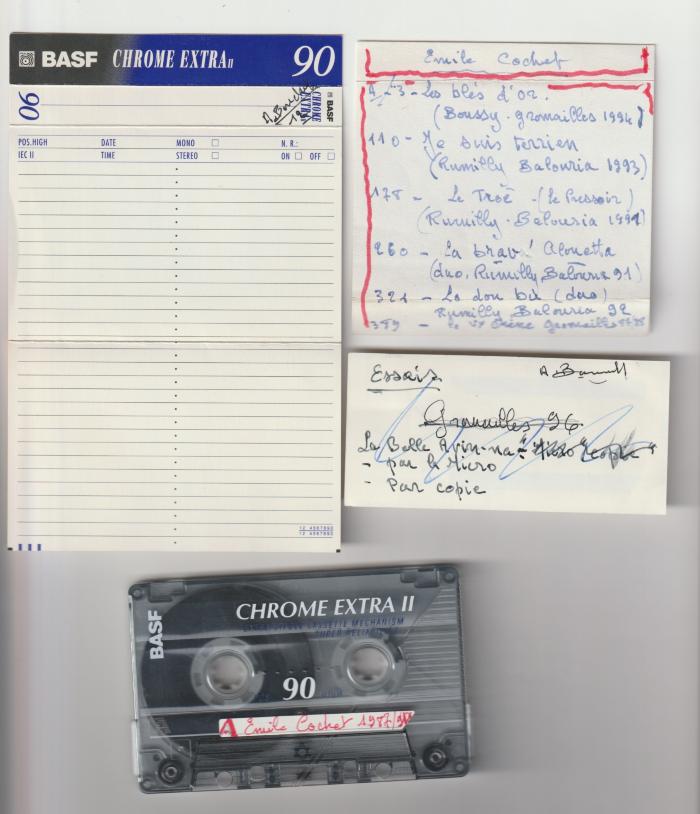 BASF CHROME EXTRA II 90
90
CHROME EXTRA II BASF
POS.HIGH DATE MONO N. R.:
IEC II TIME STEREO ON OFF
12 4567890
12 4567890
Emile Cochet
A - 3 - Les blés d'or.
(Boussy-gromailles 1994)
110 - Je suis terrien
(Rumilly Balouria 1993)
178 - Le Troë - (le Pressoir)
(Rumilly-Balouria 1991)
260 - La brav' Alouetta
(duo, Rumilly Balouria 91)
321 - Lo dou bix (duo)
Rumilly Balouria 92
389 -
Essais
Gromailles 96.
La Belle Avin-na "Micro" "copie"
- par le Micro
- Par copie
BASF
CHROME EXTRA II
CASSETTE MECHANISM
90
A Emile Cochet 1987/98